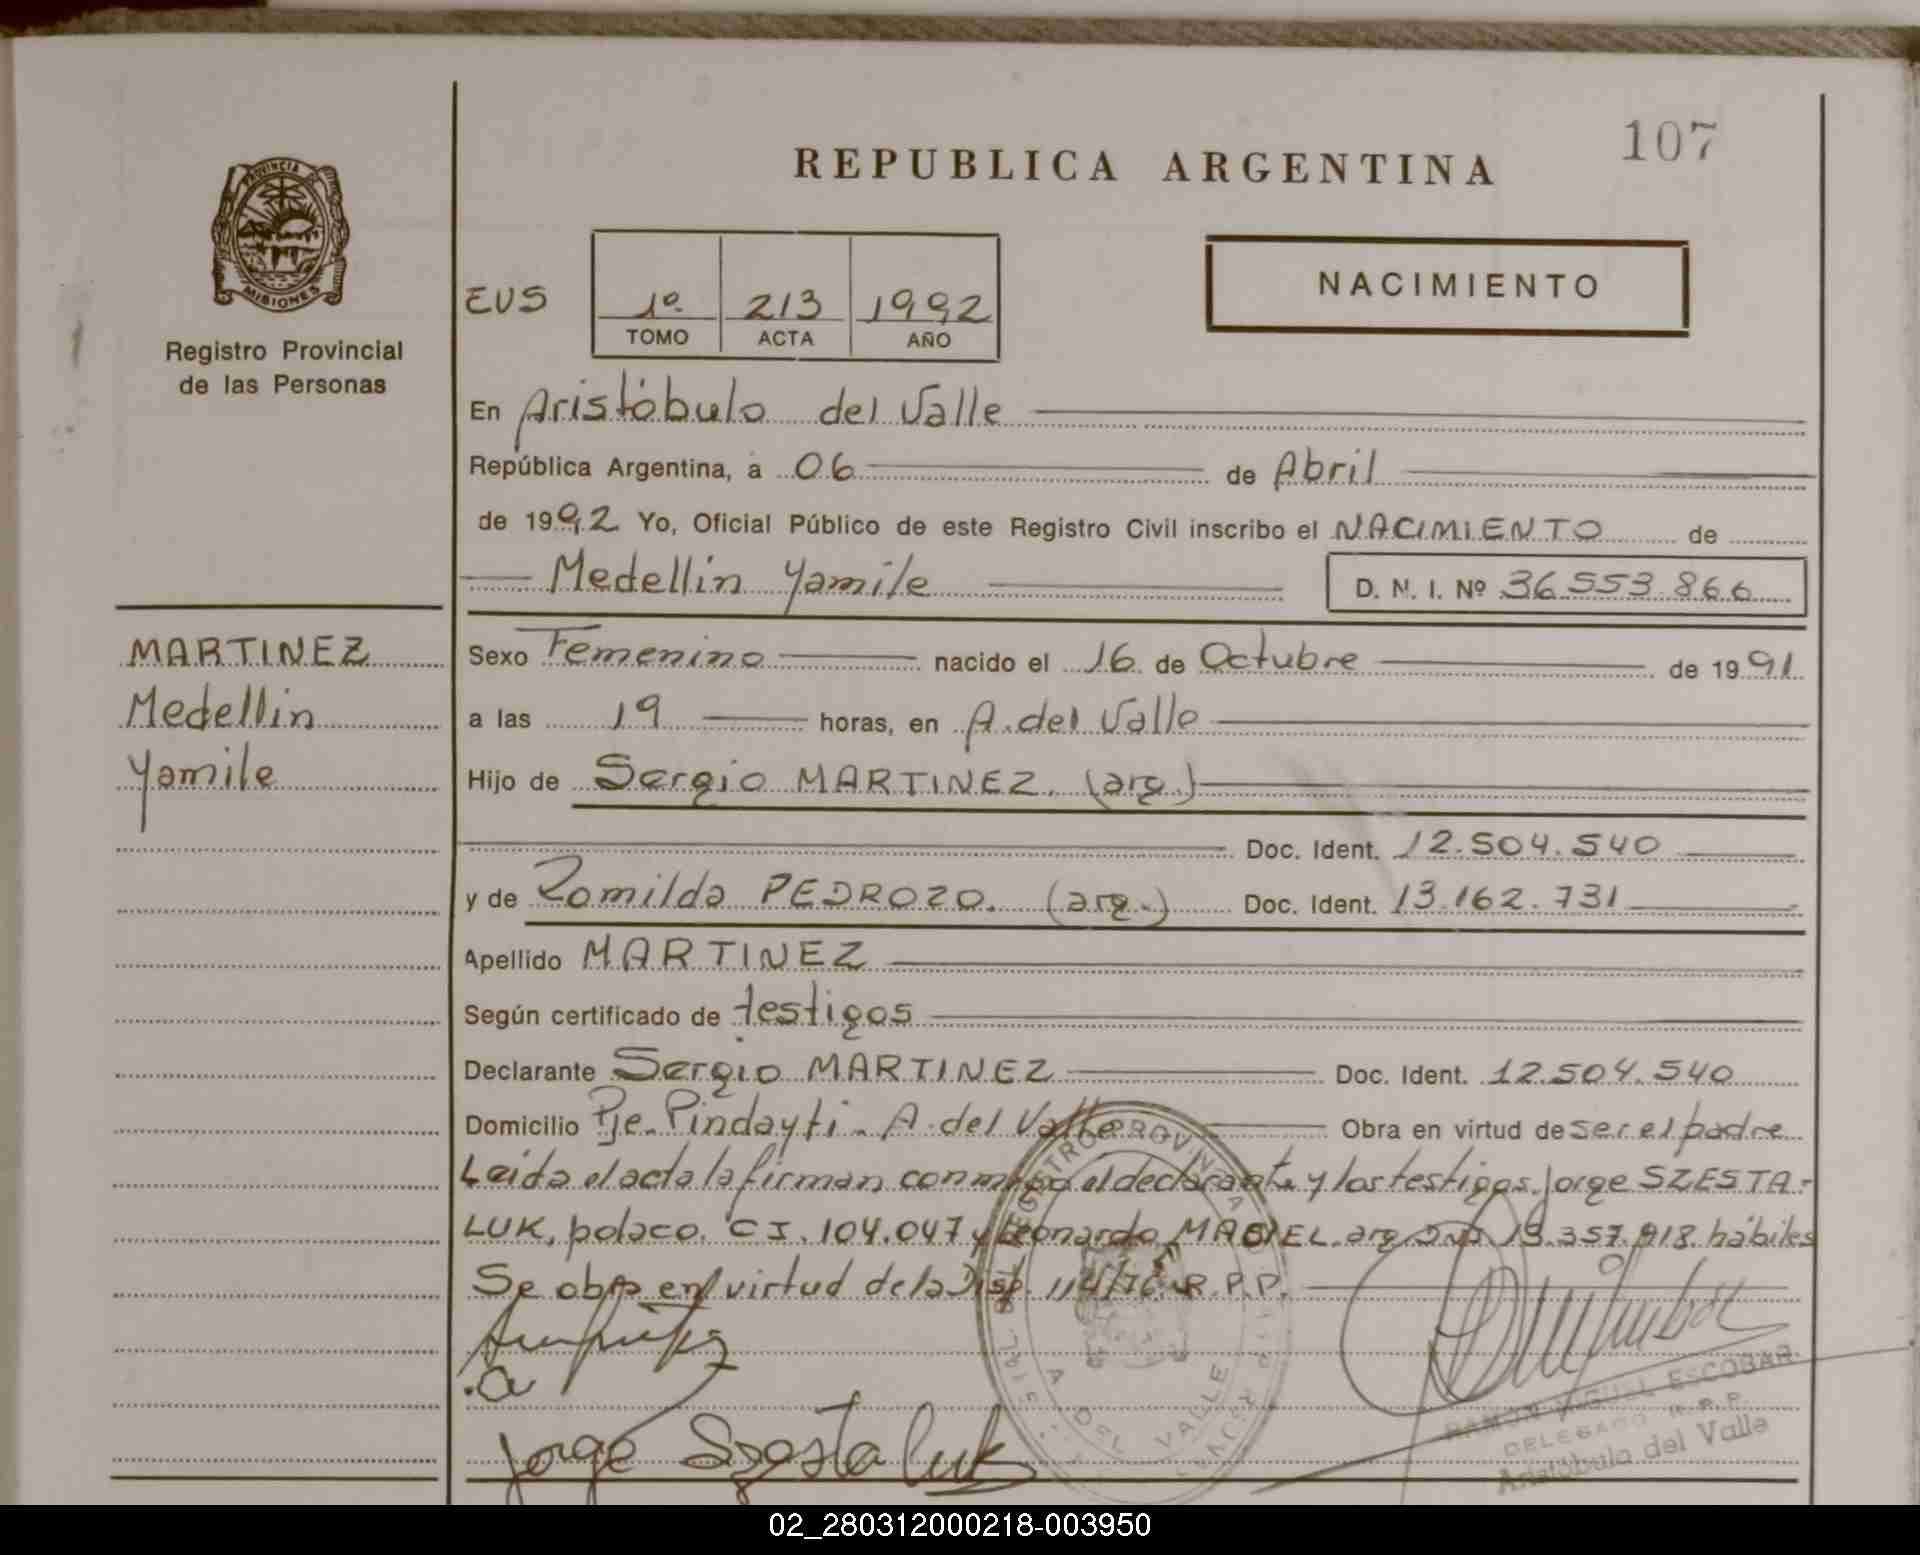 107
REPUBLICA ARGENTINA
PROVINCIA DE
MISIONES
Registro Provincial
de las Personas
EUS
1º 213 1992
TOMO ACTA AÑO
NACIMIENTO
En Aristóbulo del Valle
República Argentina, a 06 de Abril
de 1992 Yo, Oficial Público de este Registro Civil inscribo el NACIMIENTO de
Medellin Yamile D. N. I. Nº 36.553.866
MARTINEZ
Medellin
Yamile
Sexo Femenino nacido el 16 de Octubre de 1991
a las 19 horas, en A. del Valle
Hijo de Sergio MARTINEZ. (arg.)
Doc. Ident. 12.504.540
y de Romilda PEDROZO. (arg.) Doc. Ident. 13.162.731
Apellido MARTINEZ
Según certificado de testigos
Declarante Sergio MARTINEZ Doc. Ident. 12.504.540
Domicilio Pje. Pindayti - A. del Valle Obra en virtud de ser el padre
Leida el acta la firman conmigo el declarante y los testigos, Jorge SZESTA-
LUK, polaco. CI. 104.047 y Leonardo MACIEL. arg. DNI 357.918. hábiles
Se obra en virtud de la Disp. 114/76. R.P.P.
REGISTRO PROVINCIAL
DEL VALLE
Jorge Szestaluk
RAMON MIGUEL ESCOBAR
DELEGADO R.P.P.
Aristóbulo del Valle
02_280312000218-003950